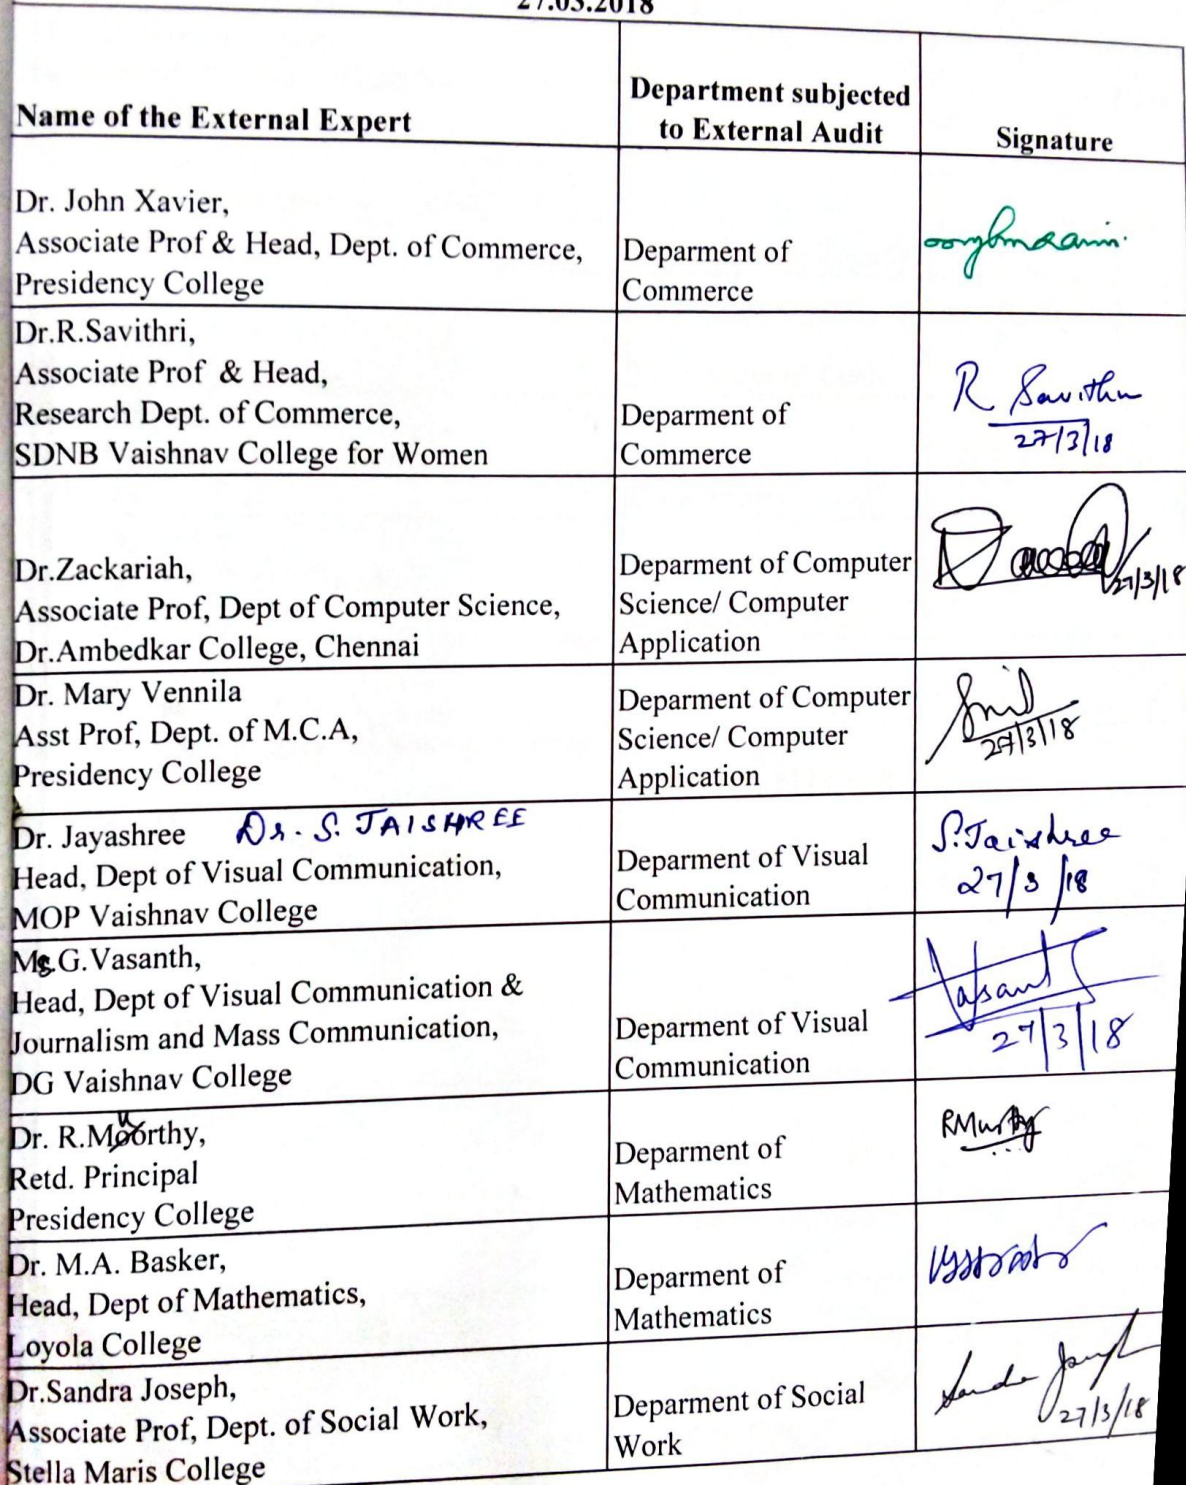 27.03.2018
Name of the External Expert
Department subjected
to External Audit
Signature
Dr. John Xavier,
Associate Prof & Head, Dept. of Commerce,
Presidency College
Deparment of
Commerce
Dr.R.Savithri,
Associate Prof & Head,
Research Dept. of Commerce,
SDNB Vaishnav College for Women
Deparment of
Commerce
R Savithri
27/3/18
Dr.Zackariah,
Associate Prof, Dept of Computer Science,
Dr.Ambedkar College, Chennai
Deparment of Computer
Science/ Computer
Application
27/3/18
Dr. Mary Vennila
Asst Prof, Dept. of M.C.A,
Presidency College
Deparment of Computer
Science/ Computer
Application
27/3/18
Dr. Jayashree Dr. S. JAISHREE
Head, Dept of Visual Communication,
MOP Vaishnav College
Deparment of Visual
Communication
S.Jaishree
27/3/18
G.Vasanth,
Head, Dept of Visual Communication &
Journalism and Mass Communication,
DG Vaishnav College
Deparment of Visual
Communication
Vasanth
27/3/18
Dr. R.Murthy,
Retd. Principal
Presidency College
Deparment of
Mathematics
RMurthy
Dr. M.A. Basker,
Head, Dept of Mathematics,
Loyola College
Deparment of
Mathematics
Dr.Sandra Joseph,
Associate Prof, Dept. of Social Work,
Stella Maris College
Deparment of Social
Work
Sandra Joseph
27/3/18